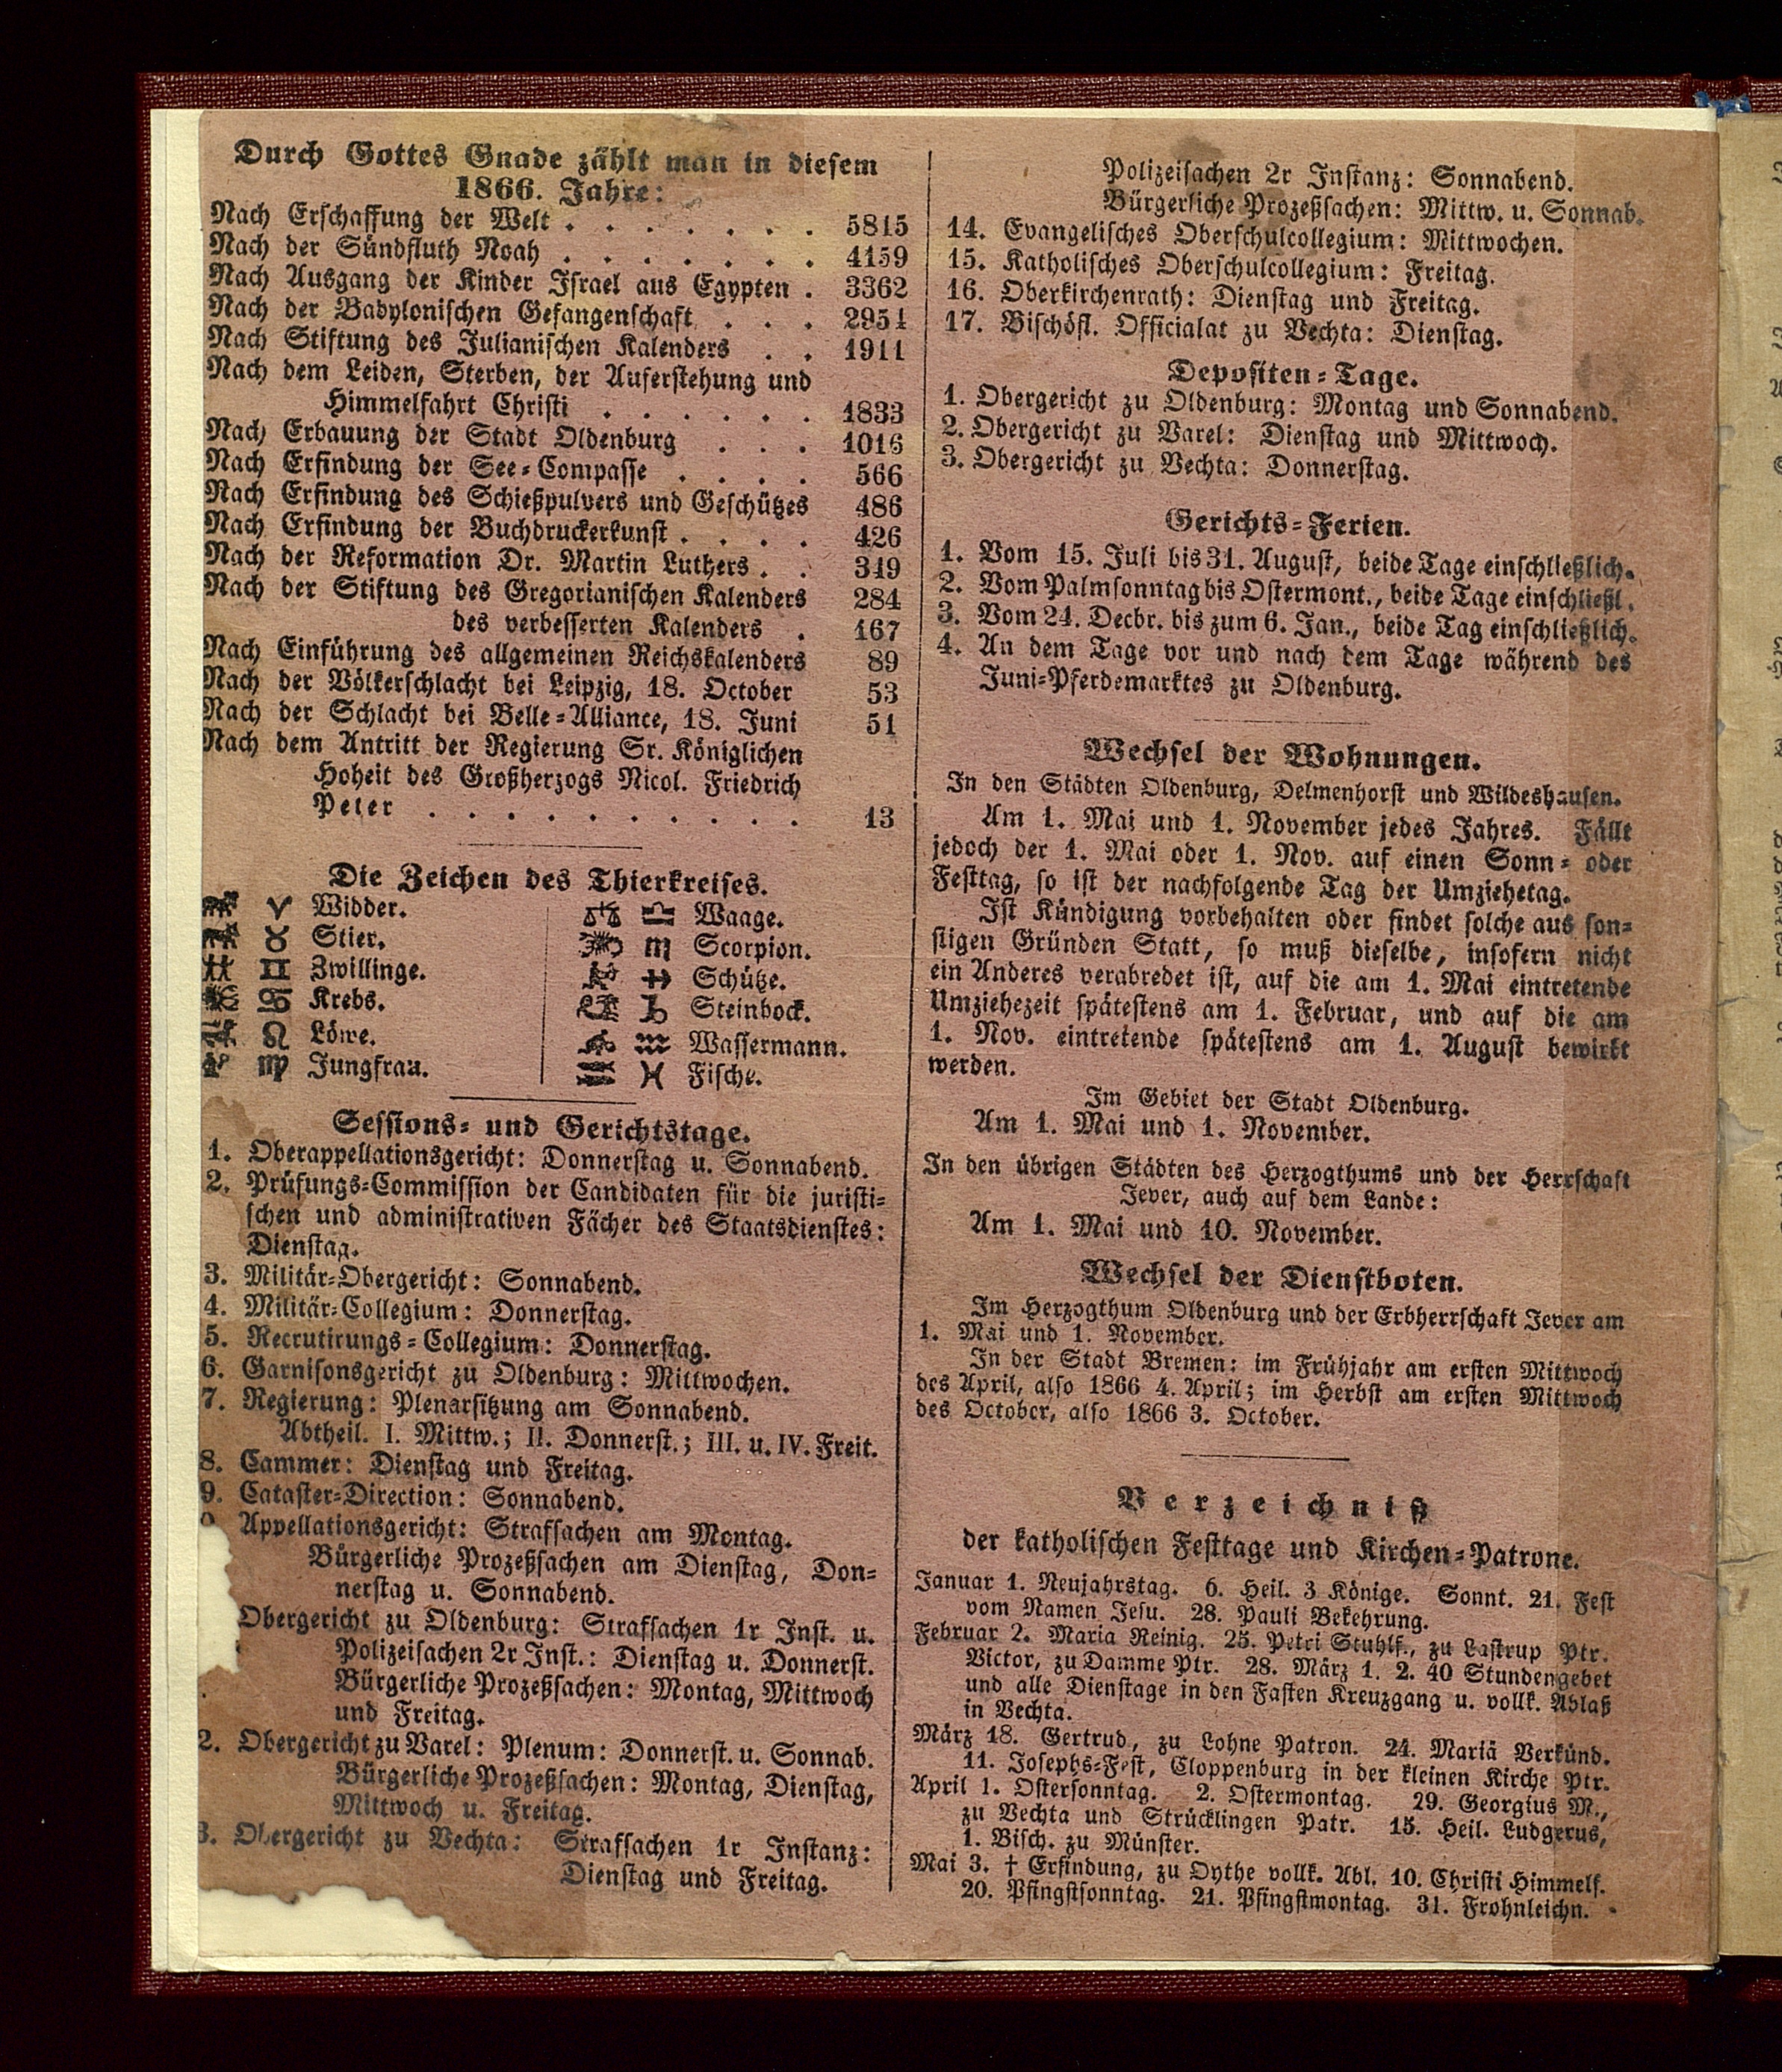 Durch Gottes Gnade zählt man in diesem
1866. Jahre:
Nach Erschaffung der Welt . . . . . . . 5815
Nach der Sündfluth Noah . . . . . . . 4159
Nach Ausgang der Kinder Israel aus Egypten . 3362
Nach der Babylonischen Gefangenschaft . . . 2951
Nach Stiftung des Julianischen Kalenders . . 1911
Nach dem Leiden, Sterben, der Auferstehung und
Himmelfahrt Christi . . . . . . 1833
Nach Erbauung der Stadt Oldenburg . . . 1016
Nach Erfindung der See-Compasse . . . . 566
Nach Erfindung des Schießpulvers und Geschützes 486
Nach Erfindung der Buchdruckerkunst . . . . 426
Nach der Reformation Dr. Martin Luthers . . 349
Nach der Stiftung des Gregorianischen Kalenders 284
des verbesserten Kalenders . 167
Nach Einführung des allgemeinen Reichskalenders 89
Nach der Völkerschlacht bei Leipzig, 18. October 53
Nach der Schlacht bei Belle-Alliance, 18. Juni 51
Nach dem Antritt der Regierung Sr. Königlichen
Hoheit des Großherzogs Nicol. Friedrich
Peter . . . . . . . . . . 13
Die Zeichen des Thierkreises.
♈ Widder.
♉ Stier.
♊ Zwillinge.
♋ Krebs.
♌ Löwe.
♍ Jungfrau.
♎ Waage.
♏ Scorpion.
♐ Schütze.
♑ Steinbock.
♒ Wassermann.
♓ Fische.
Sessions- und Gerichtstage.
1. Oberappellationsgericht: Donnerstag u. Sonnabend.
2. Prüfungs-Commission der Candidaten für die juristi-
schen und administrativen Fächer des Staatsdienstes:
Dienstag.
3. Militär-Obergericht: Sonnabend.
4. Militär-Collegium: Donnerstag.
5. Recrutirungs-Collegium: Donnerstag.
6. Garnisonsgericht zu Oldenburg: Mittwochen.
7. Regierung: Plenarsitzung am Sonnabend.
Abtheil. I. Mittw.; II. Donnerst.; III. u. IV. Freit.
8. Cammer: Dienstag und Freitag.
9. Cataster-Direction: Sonnabend.
Appellationsgericht: Strafsachen am Montag.
Bürgerliche Prozeßsachen am Dienstag, Don-
nerstag u. Sonnabend.
Obergericht zu Oldenburg: Strafsachen 1r Inst. u.
Polizeisachen 2r Inst.: Dienstag u. Donnerst.
Bürgerliche Prozeßsachen: Montag, Mittwoch
und Freitag.
2. Obergericht zu Varel: Plenum: Donnerst. u. Sonnab.
Bürgerliche Prozeßsachen: Montag, Dienstag,
Mittwoch u. Freitag.
3. Obergericht zu Vechta: Strafsachen 1r Instanz:
Dienstag und Freitag.
Polizeisachen 2r Instanz: Sonnabend.
Bürgerliche Prozeßsachen: Mittw. u. Sonnab.
14. Evangelisches Oberschulcollegium: Mittwochen.
15. Katholisches Oberschulcollegium: Freitag.
16. Oberkirchenrath: Dienstag und Freitag.
17. Bischöfl. Officialat zu Vechta: Dienstag.
Depositen-Tage.
1. Obergericht zu Oldenburg: Montag und Sonnabend.
2. Obergericht zu Varel: Dienstag und Mittwoch.
3. Obergericht zu Vechta: Donnerstag.
Gerichts-Ferien.
1. Vom 15. Juli bis 31. August, beide Tage einschließlich.
2. Vom Palmsonntag bis Ostermont., beide Tage einschließl.
3. Vom 24. Decbr. bis zum 6. Jan., beide Tag einschließlich.
4. An dem Tage vor und nach dem Tage während des
Juni-Pferdemarktes zu Oldenburg.
Wechsel der Wohnungen.
In den Städten Oldenburg, Delmenhorst und Wildeshausen.
Am 1. Mai und 1. November jedes Jahres. Fällt
jedoch der 1. Mai oder 1. Nov. auf einen Sonn- oder
Festtag, so ist der nachfolgende Tag der Umziehetag.
Ist Kündigung vorbehalten oder findet solche aus son-
stigen Gründen Statt, so muß dieselbe, insofern nicht
ein Anderes verabredet ist, auf die am 1. Mai eintretende
Umziehezeit spätestens am 1. Februar, und auf die am
1. Nov. eintretende spätestens am 1. August bewirkt
werden.
Im Gebiet der Stadt Oldenburg.
Am 1. Mai und 1. November.
In den übrigen Städten des Herzogthums und der Herrschaft
Jever, auch auf dem Lande:
Am 1. Mai und 10. November.
Wechsel der Dienstboten.
Im Herzogthum Oldenburg und der Erbherrschaft Jever am
1. Mai und 1. November.
In der Stadt Bremen: im Frühjahr am ersten Mittwoch
des April, also 1866 4. April; im Herbst am ersten Mittwoch
des October, also 1866 3. October.
Verzeichniß
der katholischen Festtage und Kirchen-Patrone.
Januar 1. Neujahrstag. 6. Heil. 3 Könige. Sonnt. 21. Fest
vom Namen Jesu. 28. Pauli Bekehrung.
Februar 2. Maria Reinig. 25. Petri Stuhlf., zu Lastrup Ptr.
Victor, zu Damme Ptr. 28. März 1. 2. 40 Stundengebet
und alle Dienstage in den Fasten Kreuzgang u. vollk. Ablaß
in Vechta.
März 18. Gertrud, zu Lohne Patron. 24. Mariä Verkünd.
11. Josephs-Fest, Cloppenburg in der kleinen Kirche Ptr.
April 1. Ostersonntag. 2. Ostermontag. 29. Georgius M.,
zu Vechta und Strücklingen Patr. 15. Heil. Ludgerus,
1. Bisch. zu Münster.
Mai 3. † Erfindung, zu Oythe vollk. Abl. 10. Christi Himmelf.
20. Pfingstsonntag. 21. Pfingstmontag. 31. Frohnleichn.